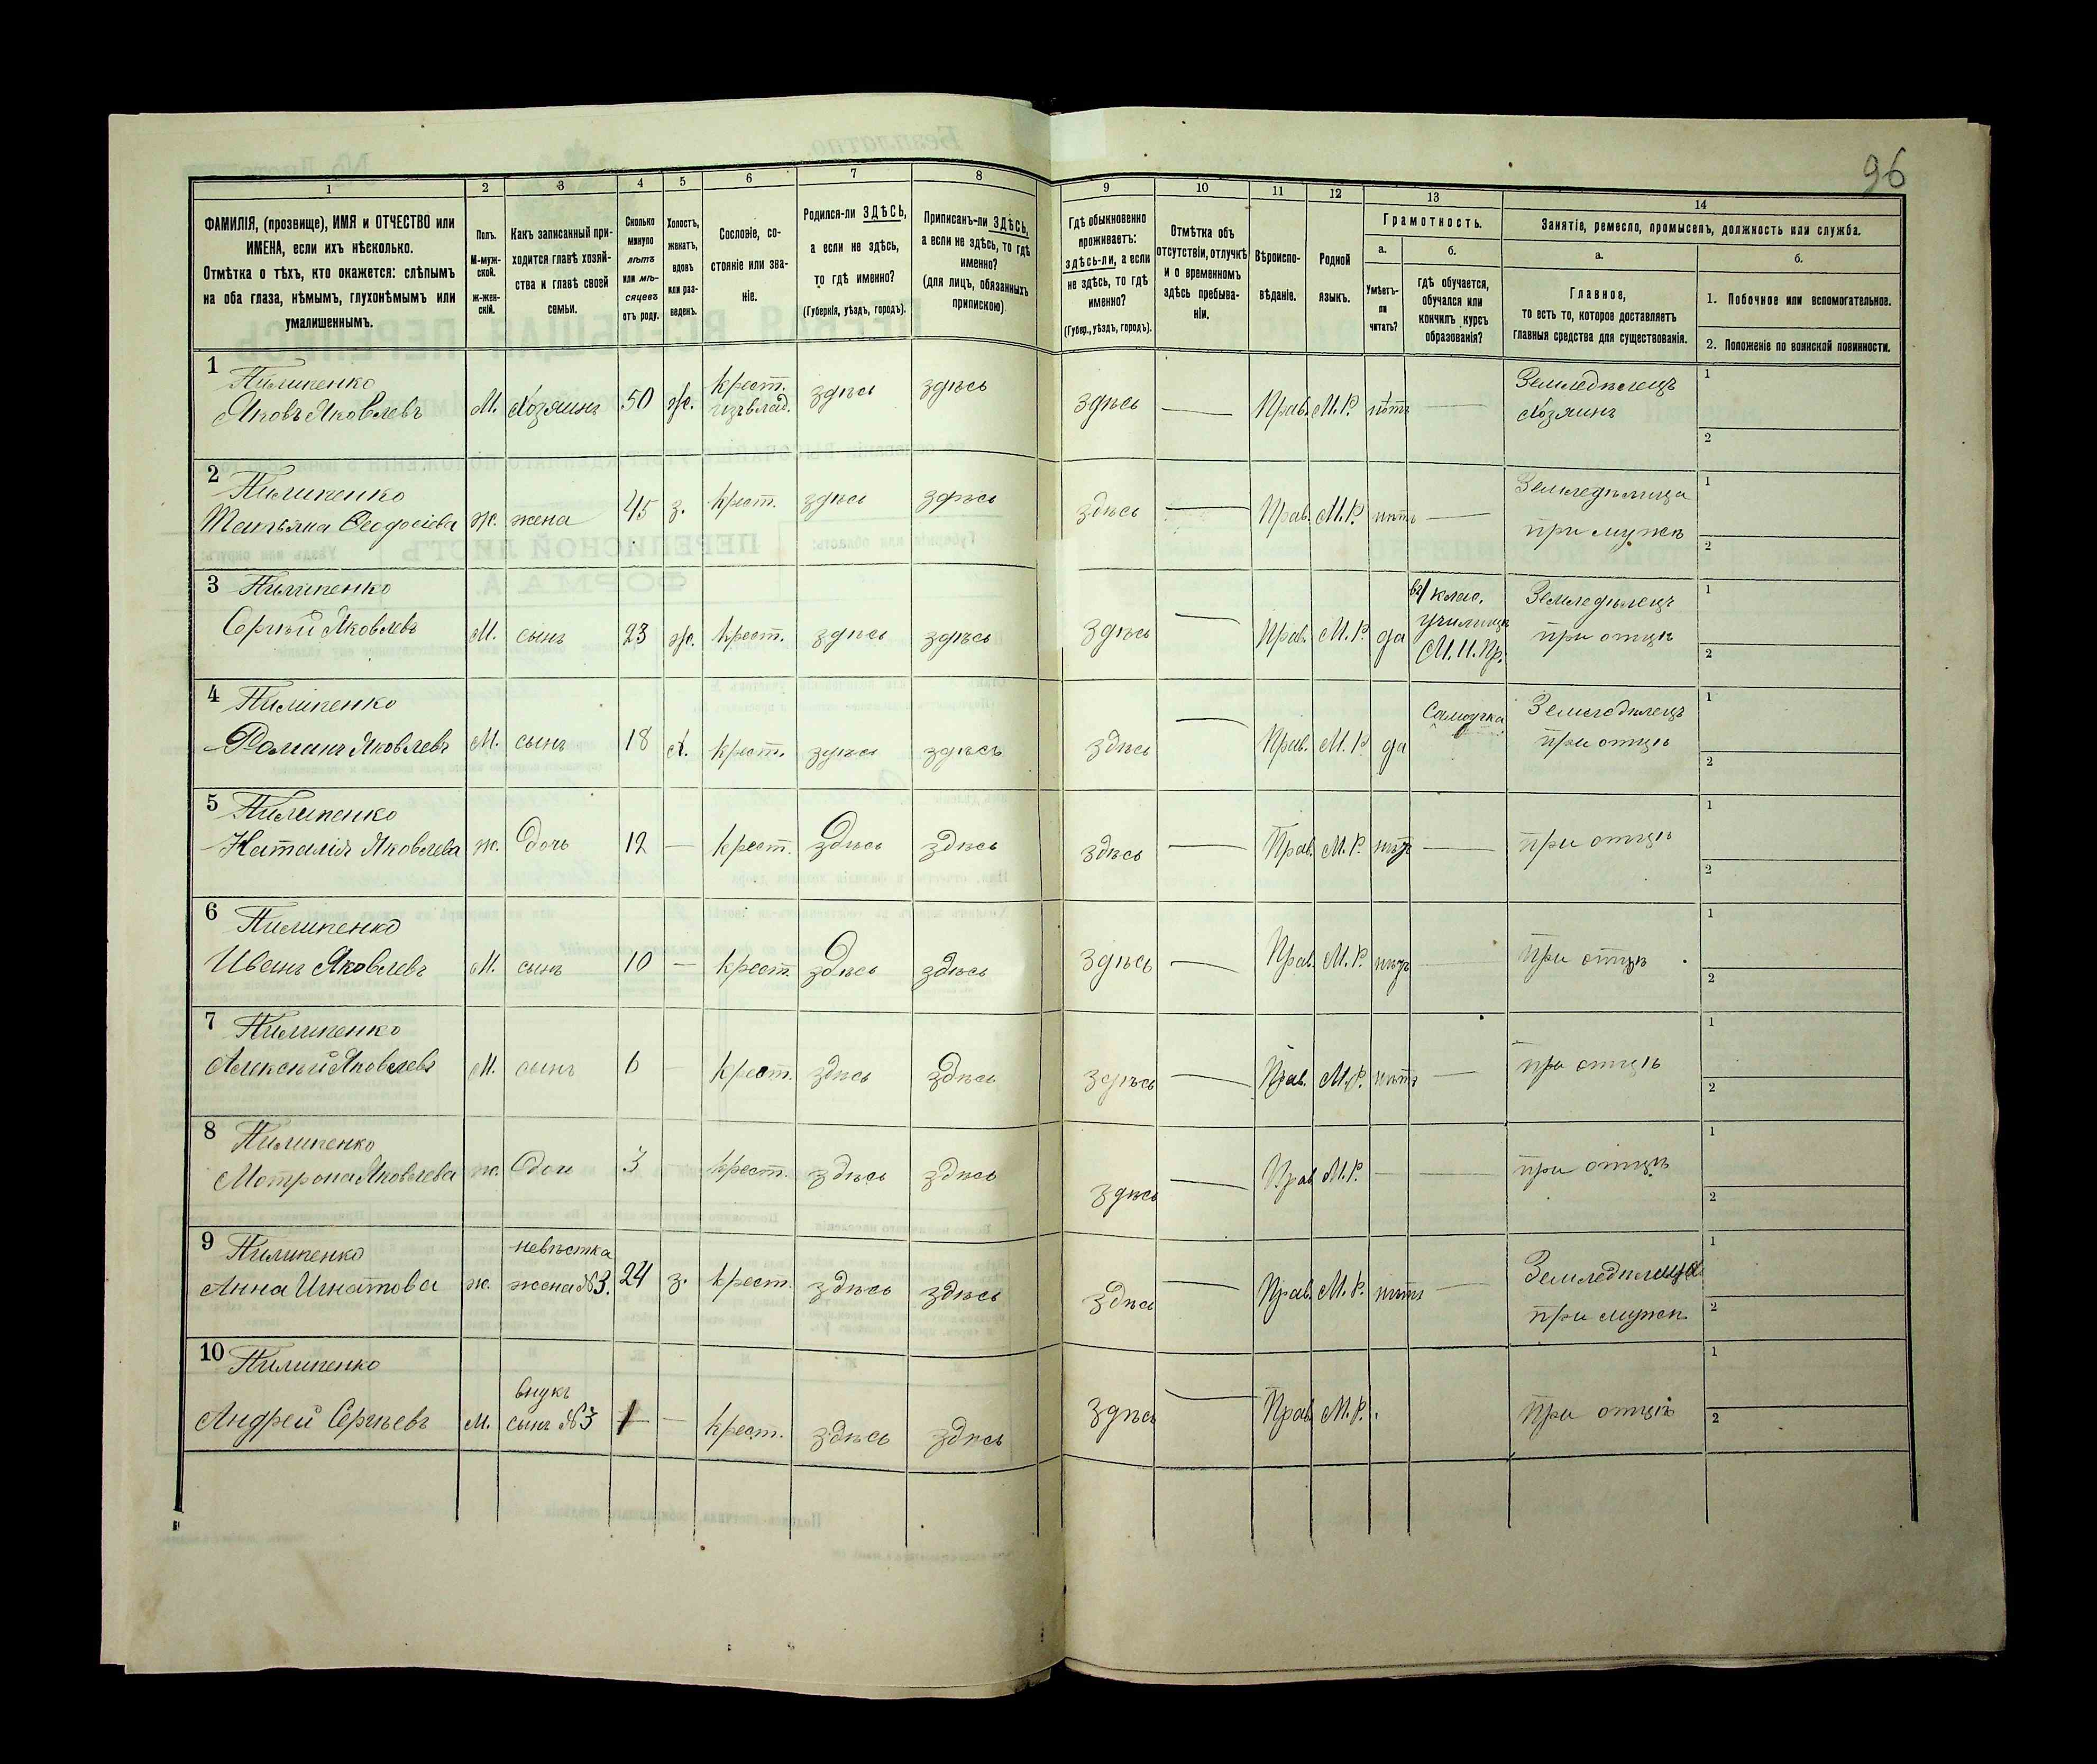 96
1 2 3 4 5 6 7 8 9 10 11 12 13 14
ФАМИЛІЯ, (прозвище), ИМЯ и ОТЧЕСТВО или
ИМЕНА, если ихъ нѣсколько.
Отмѣтка о тѣхъ, кто окажется: слѣпымъ
на оба глаза, нѣмымъ, глухонѣмымъ или
умалишеннымъ.
Полъ.
М-муж-
ской.
ж-жен-
скій.
Какъ записанный при-
ходится главѣ хозяй-
ства и главѣ своей
семьи.
Сколько
минуло
лѣтъ
или мѣ-
сяцевъ
отъ роду.
Холостъ,
женатъ,
вдовъ
или раз-
веденъ.
Сословіе, со-
стояніе или зва-
ніе.
Родился-ли ЗДѢСЬ,
а если не здѣсь,
то гдѣ именно?
(Губернія, уѣздъ, городъ).
Приписанъ-ли ЗДѢСЬ,
а если не здѣсь, то гдѣ
именно?
(для лицъ, обязанныхъ
припискою)
Гдѣ обыкновенно
проживаетъ:
здѣсь-ли, а если
не здѣсь, то гдѣ
именно?
(Губер., уѣздъ, городъ).
Отмѣтка объ
отсутствіи, отлучкѣ
и о временномъ
здѣсь пребыва-
ніи.
Вѣроиспо-
вѣданіе.
Родной
языкъ.
Грамотность.
а.
Умѣетъ-
ли
читать?
б.
гдѣ обучается,
обучался или
кончилъ курсъ
образованія?
Занятіе, ремесло, промыселъ, должность или служба.
а.
Главное,
то есть то, которое доставляетъ
главныя средства для существованія.
б.
1. Побочное или вспомогательное.
2. Положеніе по воинской повинности.
1 Пилипенко
Яковъ Яковлевъ М. Хозяинъ 50 ж. крест. изъ влад. здѣсь здѣсь здѣсь — Прав. М.Р. нѣтъ — Земледѣлецъ
хозяинъ
1
2
2 Пилипенко
Татьяна Ѳеодосіева ж. жена 45 з. крест. здѣсь здѣсь здѣсь — Прав. М.Р. нѣтъ — Земледѣлица
при мужѣ
1
2
3 Пилипенко
Сергѣй Яковлевъ М. сынъ 23 ж. крест. здѣсь здѣсь здѣсь — Прав. М.Р. да въ 1 клас.
училищѣ
М.Н.Пр.
Земледѣлецъ
при отцѣ
1
2
4 Пилипенко
Романъ Яковлевъ М. сынъ 18 х. крест. здѣсь здѣсь здѣсь — Прав. М.Р. да Самоучка Земледѣлецъ
при отцѣ
1
2
5 Пилипенко
Наталія Яковлева ж. дочь 12 — крест. здѣсь здѣсь здѣсь — Прав. М.Р. нѣтъ — при отцѣ
1
2
6 Пилипенко
Иванъ Яковлевъ М. сынъ 10 — крест. здѣсь здѣсь здѣсь — Прав. М.Р. нѣтъ — при отцѣ
1
2
7 Пилипенко
Алексѣй Яковлевъ М. сынъ 6 — крест. здѣсь здѣсь здѣсь — Прав. М.Р. нѣтъ — при отцѣ
1
2
8 Пилипенко
Мотрона Яковлева ж. дочь 3 крест. здѣсь здѣсь здѣсь — Прав М.Р. — — при отцѣ
1
2
9 Пилипенко невѣстка
Анна Игнатова ж. жена №3. 24 з. крест. здѣсь здѣсь здѣсь — Прав. М.Р. нѣтъ — Земледѣлица
при мужѣ
1
2
10 Пилипенко
внукъ
Андрей Сергѣевъ М. сынъ №3 1 — крест. здѣсь здѣсь здѣсь — Прав. М.Р. при отцѣ
1
2